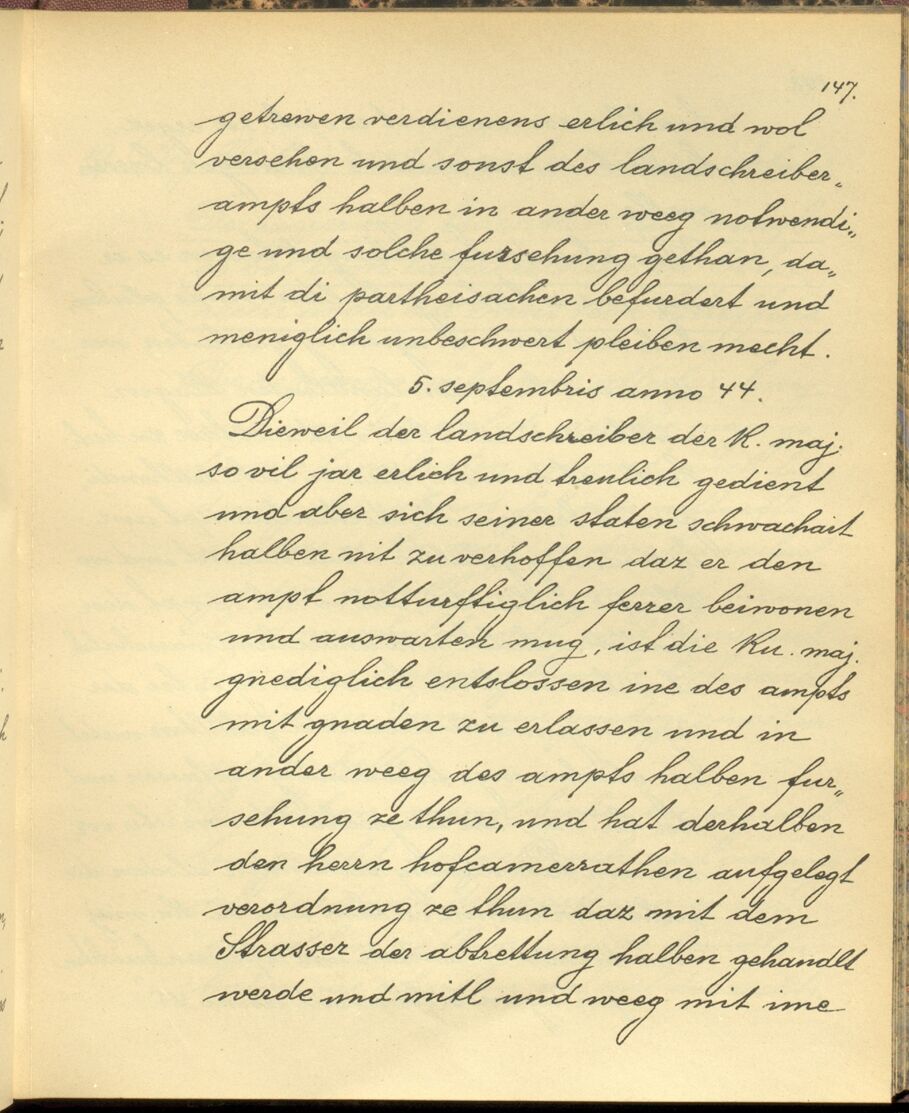 147.
getrewen verdienens erlich und wol
versehen und sonst des landschreiber„
ampts halben in ander weeg notwendi„
ge und solche fursehung gethan, da„
mit di partheisachen befurdert und
meniglich unbeschwert pleiben mecht.
5. septembris anno 44.
Dieweil der landschreiber der K. maj.
so vil jar erlich und treulich gedient
und aber sich seiner staten schwachait
halben nit zu verhoffen daz er den
ampt notturftiglich ferrer beiwonen
und auswarten mug, ist die Ku. maj.
gnediglich entslossen ine des ampts
mit gnaden zu erlassen und in
ander weeg des ampts halben fur„
sehung ze thun, und hat derhalben
den herrn hofcamerrathen aufgelegt
verordnung ze thun daz mit dem
Strasser der abtrettung halben gehandlt
werde und mitl und weeg mit ime